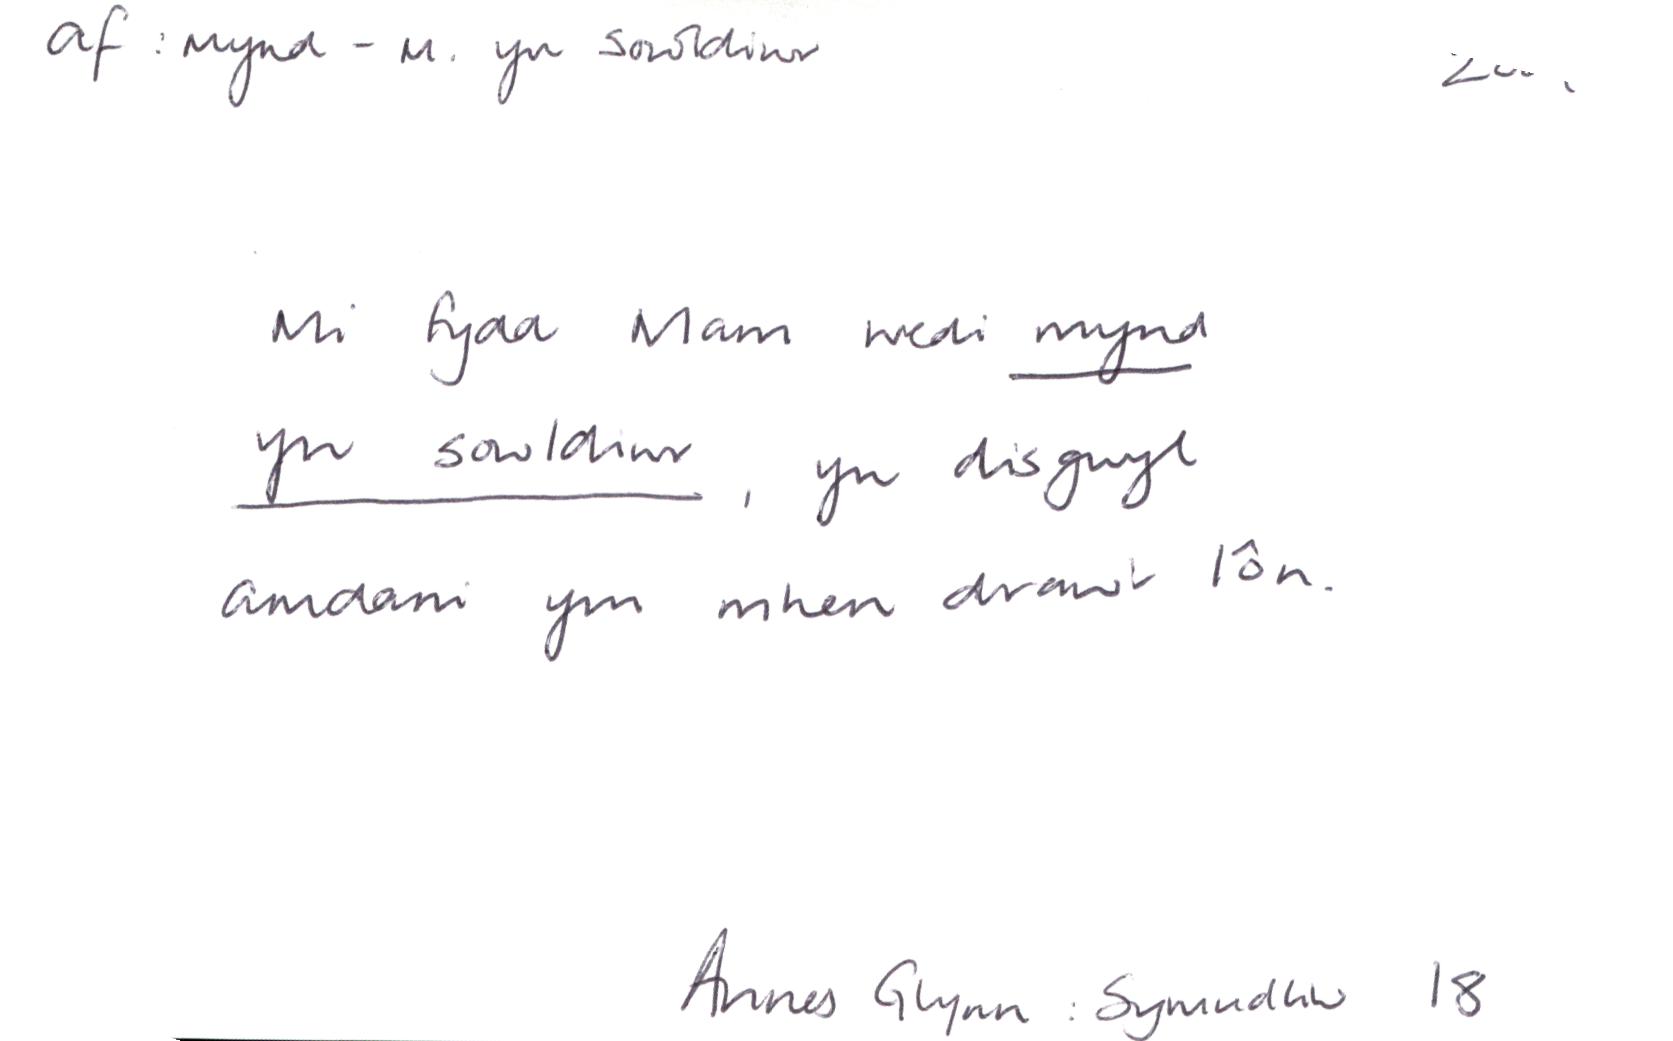 af : mynd - M. yn sowldiwr
Mi fydd Mam wedi mynd
yn sowldiwr, yn disgwyl
amdani ym mhen drawr lôn.
Annes Glynn : Symudliw 18